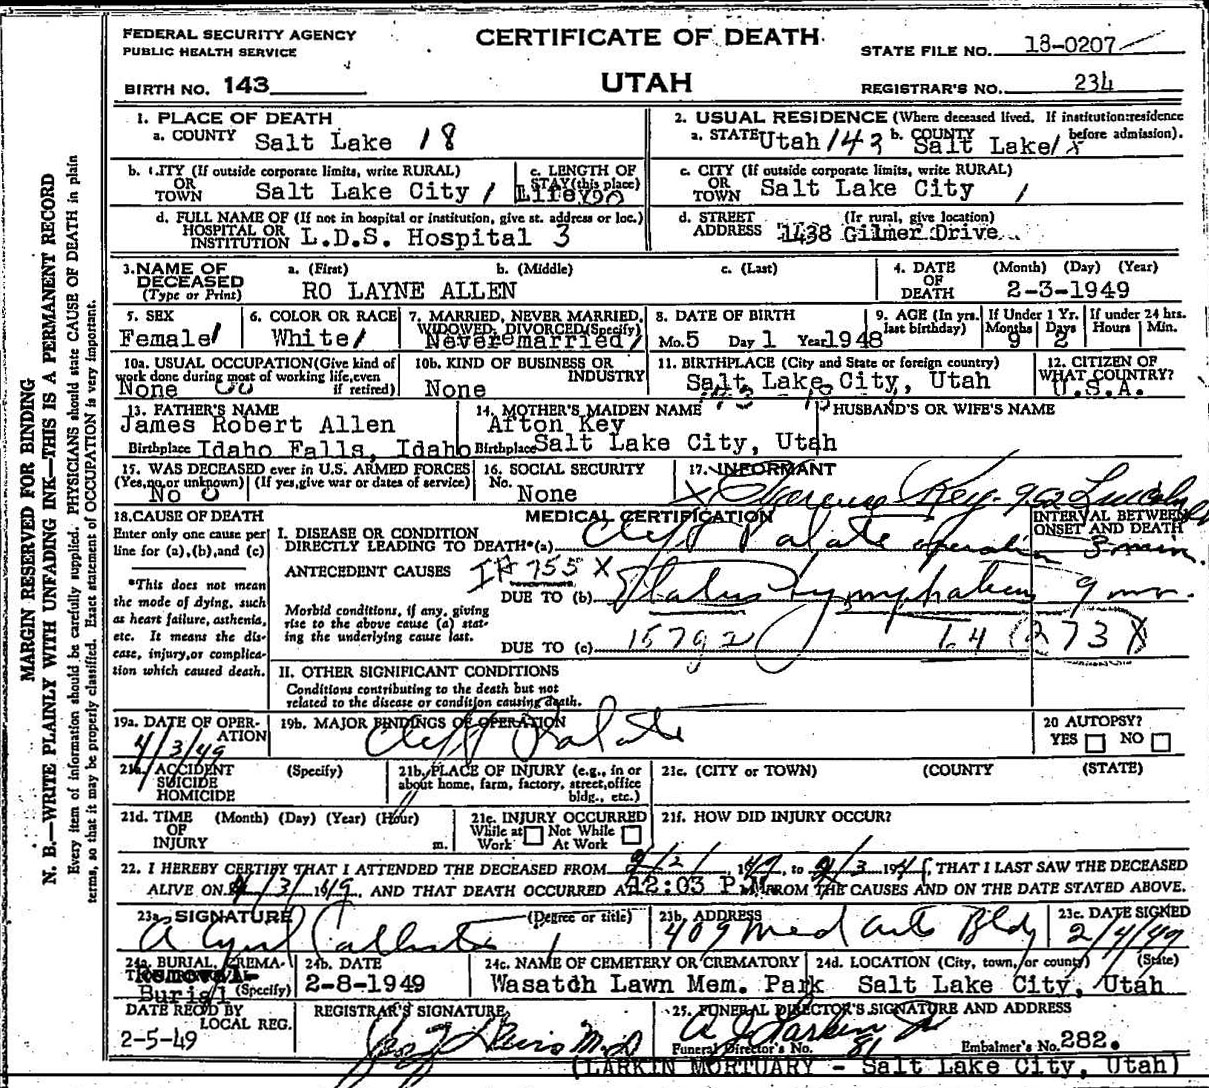 FEDERAL SECURITY AGENCY
PUBLIC HEALTH SERVICE
CERTIFICATE OF DEATH
STATE FILE NO. 18-0207
BIRTH NO. 143
UTAH
REGISTRAR'S NO. 234
MARGIN RESERVED FOR BINDING
N. B.—WRITE PLAINLY WITH UNFADING INK—THIS IS A PERMANENT RECORD
Every item of information should be carefully supplied. PHYSICIANS should state CAUSE OF DEATH in plain
terms, so that it may be properly classified. Exact statement of OCCUPATION is very important.
1. PLACE OF DEATH
a. COUNTY Salt Lake 18
2. USUAL RESIDENCE (Where deceased lived. If institution:residence
before admission).
a. STATE Utah 143 b. COUNTY Salt Lake
b. CITY (If outside corporate limits, write RURAL)
OR
TOWN Salt Lake City 1
c. LENGTH OF
STAY (this place)
Life
c. CITY (If outside corporate limits, write RURAL)
OR
TOWN Salt Lake City 1
d. FULL NAME OF (If not in hospital or institution, give st. address or loc.)
HOSPITAL OR
INSTITUTION L.D.S. Hospital 3
d. STREET (If rural, give location)
ADDRESS 1438 Gilmer Drive
3. NAME OF
DECEASED
(Type or Print)
a. (First) b. (Middle) c. (Last)
RO LAYNE ALLEN
4. DATE
OF
DEATH
(Month) (Day) (Year)
2-3-1949
5. SEX
Female 1
6. COLOR OR RACE
White 1
7. MARRIED, NEVER MARRIED,
WIDOWED, DIVORCED (Specify)
Never married 1
8. DATE OF BIRTH
Mo. 5 Day 1 Year 1948
9. AGE (In yrs.
last birthday)
If Under 1 Yr.
Months Days
9 2
If under 24 hrs.
Hours Min.
10a. USUAL OCCUPATION (Give kind of
work done during most of working life, even
if retired)
None
10b. KIND OF BUSINESS OR
INDUSTRY
None
11. BIRTHPLACE (City and State or foreign country)
Salt Lake City, Utah
12. CITIZEN OF
WHAT COUNTRY?
U.S.A.
13. FATHER'S NAME
James Robert Allen
Birthplace Idaho Falls, Idaho
14. MOTHER'S MAIDEN NAME
Afton Key
Birthplace Salt Lake City, Utah
HUSBAND'S OR WIFE'S NAME
15. WAS DECEASED ever in U.S. ARMED FORCES
(Yes, no, or unknown) (If yes, give war or dates of service)
No 0
16. SOCIAL SECURITY
No. None
17. INFORMANT
X Clarence Key
18. CAUSE OF DEATH
Enter only one cause per
line for (a), (b), and (c)
*This does not mean
the mode of dying, such
as heart failure, asthenia,
etc. It means the dis-
ease, injury, or complica-
tion which caused death.
MEDICAL CERTIFICATION
INTERVAL BETWEEN
ONSET AND DEATH
I. DISEASE OR CONDITION
DIRECTLY LEADING TO DEATH*(a) Cleft Palate operation 3 min.
ANTECEDENT CAUSES 755 X
DUE TO (b) Status Lymphaticus 9 mo.
Morbid conditions, if any, giving
rise to the above cause (a) stat-
ing the underlying cause last.
DUE TO (c) 273 X
II. OTHER SIGNIFICANT CONDITIONS
Conditions contributing to the death but not
related to the disease or condition causing death.
19a. DATE OF OPER-
ATION
19b. MAJOR FINDINGS OF OPERATION
Cleft Palate
20 AUTOPSY?
YES NO
21a. ACCIDENT (Specify)
SUICIDE
HOMICIDE
21b. PLACE OF INJURY (e.g., in or
about home, farm, factory, street, office
bldg., etc.)
21c. (CITY or TOWN) (COUNTY) (STATE)
21d. TIME (Month) (Day) (Year) (Hour)
OF
INJURY m.
21e. INJURY OCCURRED
While at Not While
Work At Work
21f. HOW DID INJURY OCCUR?
22. I HEREBY CERTIFY THAT I ATTENDED THE DECEASED FROM 2/2/ 1949, to 2/3 194, THAT I LAST SAW THE DECEASED
ALIVE ON 2/3/ 1949, AND THAT DEATH OCCURRED AT 12:03 P.M. FROM THE CAUSES AND ON THE DATE STATED ABOVE.
23a. SIGNATURE (Degree or title)
23b. ADDRESS
409 Med Arts Bldg
23c. DATE SIGNED
2/4/49
24a. BURIAL, CREMA-
TION, Removal
Burial (Specify)
24b. DATE
2-8-1949
24c. NAME OF CEMETERY OR CREMATORY
Wasatch Lawn Mem. Park
24d. LOCATION (City, town, or county) (State)
Salt Lake City, Utah
DATE REC'D BY
LOCAL REG.
2-5-49
REGISTRAR'S SIGNATURE
25. FUNERAL DIRECTOR'S SIGNATURE AND ADDRESS
Funeral Director's No. 81 Embalmer's No. 282.
(LARKIN MORTUARY - Salt Lake City, Utah)